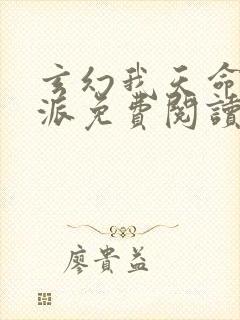 玄幻我天命
派免費閱讀
廖貴益